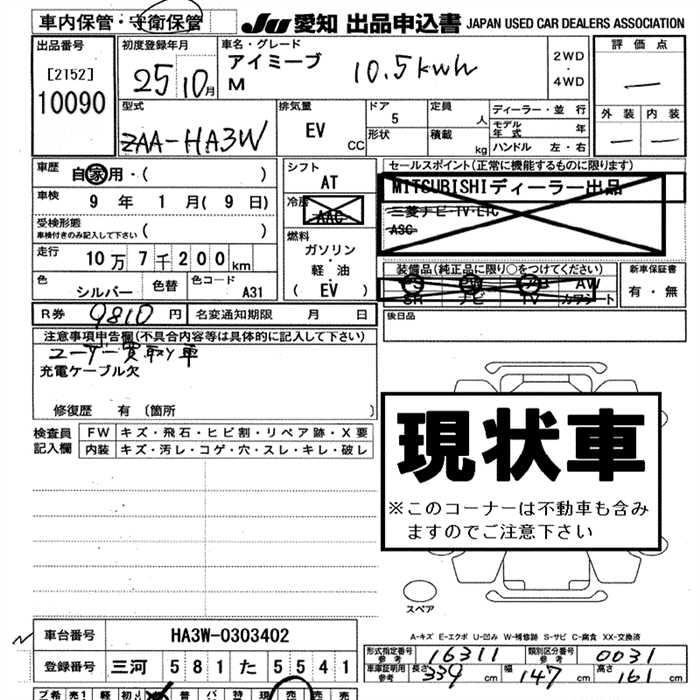 車内保管・守衛保管
JU 愛知 出品申込書 JAPAN USED CAR DEALERS ASSOCIATION
出品番号
[2152]
10090
初度登録年月
25 10月
車名・グレード
アイミーブ
M
10.5kwh
2WD
・
4WD
評価点
—
外装 内装
— —
型式
ZAA-HA3W
排気量
EV
CC
ドア
5
形状
定員
人
積載
kg
ディーラー・並行
モデル年式 年
ハンドル 左・右
車歴
自家用・( )
車検
9年 1月(9日)
受検形態
車検付きのみ記入して下さい ( )
走行
10万7千200km
色
シルバー
色替
色コード
A31
シフト
AT
冷房
AAC
燃料
ガソリン
・
軽・油
(EV)
セールスポイント(正常に機能するものに限ります)
MITSUBISHIディーラー出品
三菱ナビ・TV・ETC
ASC
装備品(純正品に限り○をつけてください)
PS PW AB AW
SR ナビ TV カワシート
新車保証書
有・無
R券 9810円
名変通知期限 月 日
後日品
注意事項申告欄(不具合内容等は具体的に記入して下さい)
ユーザー買取り車
充電ケーブル欠
修復歴 有 〔箇所 〕
検査員
記入欄
FW キズ・飛石・ヒビ割・リペア跡・X要
内装 キズ・汚レ・コゲ・穴・スレ・キレ・破レ
現状車
※このコーナーは不動車も含み
ますのでご注意下さい
スペア
A-キズ E-エクボ U-凹み W-補修跡 S-サビ C-腐食 XX-交換済
車台番号 HA3W-0303402
登録番号 三河 581 た 5541
形式指定番号
参考
16311
類別区分番号
参考
0031
車庫証明用
参考
長さ 339cm 幅 147cm 高さ 161cm